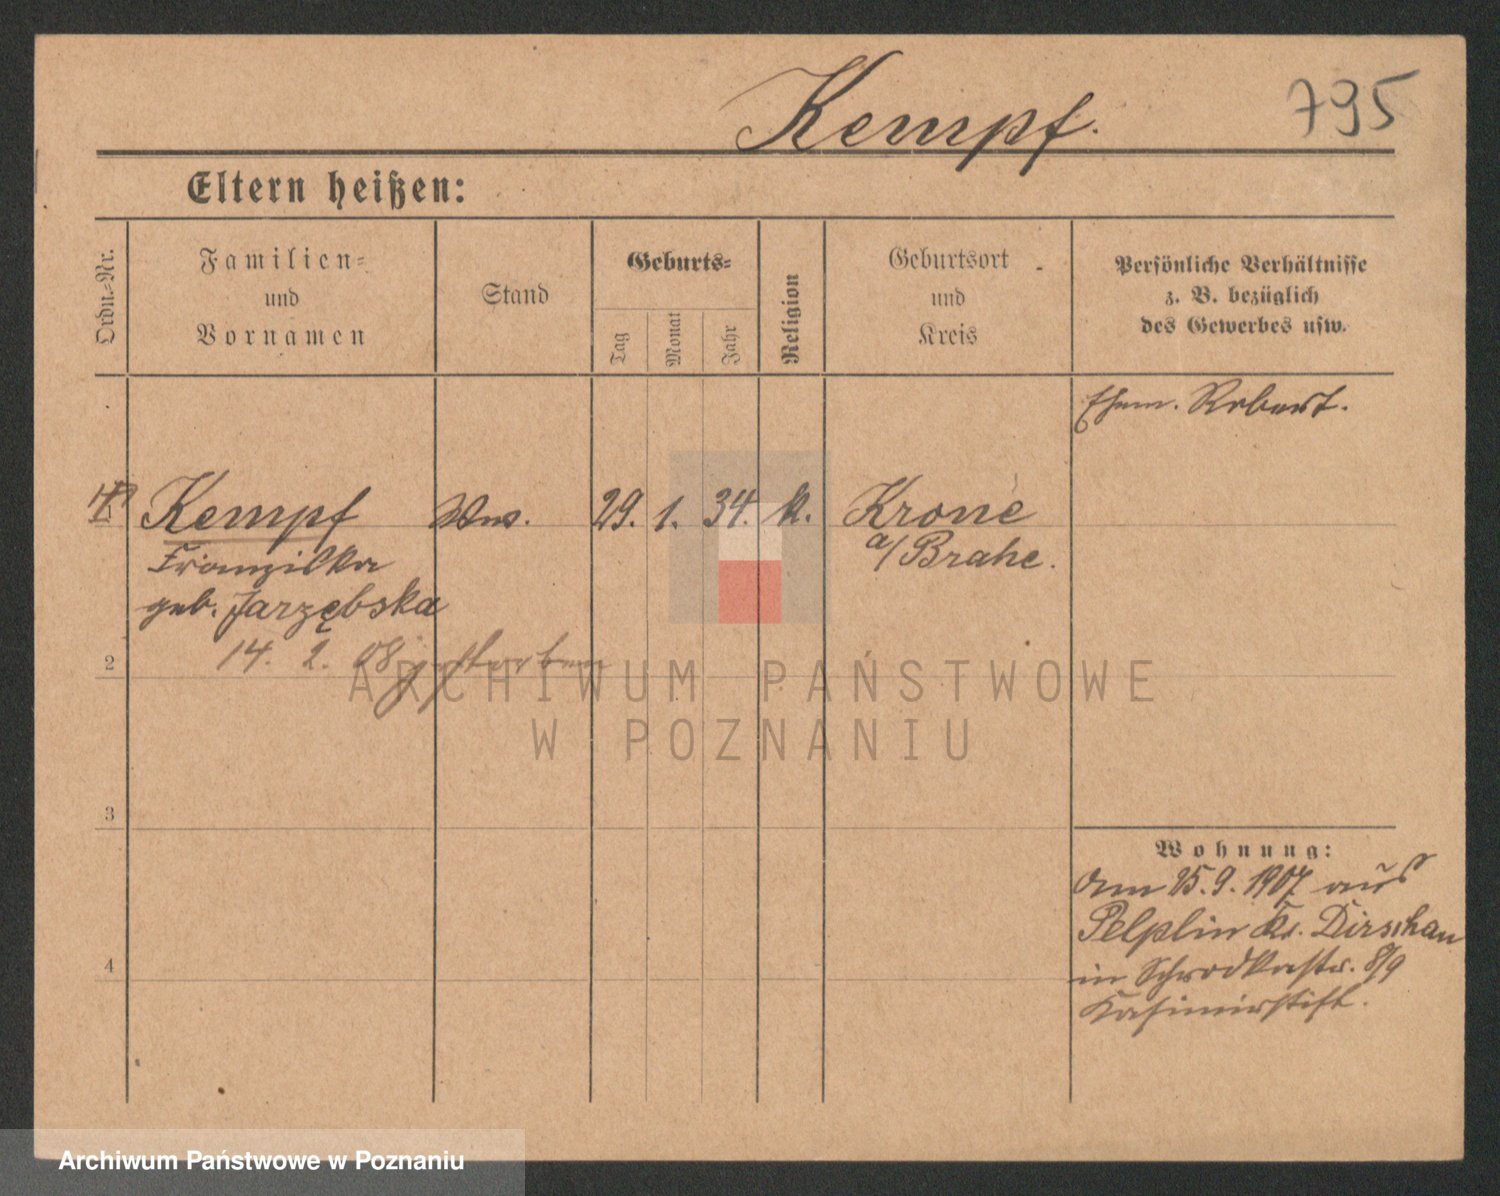 Kempf.
795
Eltern heißen:
Ordn.-Nr.
Familien-
und
Vornamen
Stand
Geburts-
Tag
Monat
Jahr
Religion
Geburtsort
und
Kreis
Persönliche Verhältnisse
z. B. bezüglich
des Gewerbes usw.
Ehem. Robert.
Kempf Ww. 29. 1. 34. k. Krone
a/Brahe.
Franziska
geb. Jarzębska
14. 2. 08 gestorben
2
3
4
Wohnung:
Am 25.9.1907 aus
Pelplin Kr. Dirschau
in Schrodkastr. 8/9
Kasimirstift.
ARCHIWUM PAŃSTWOWE
W POZNANIU
Archiwum Państwowe w Poznaniu